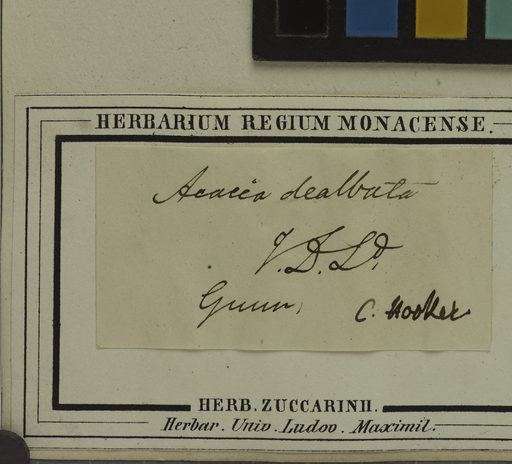 HERBARIUM REGIUM MONACENSE.
Acacia dealbata
V. D. Ld.
Gunn, C. Hooker
HERB. ZUCCARINII.
Herbar. Univ. Ludov. Maximil.